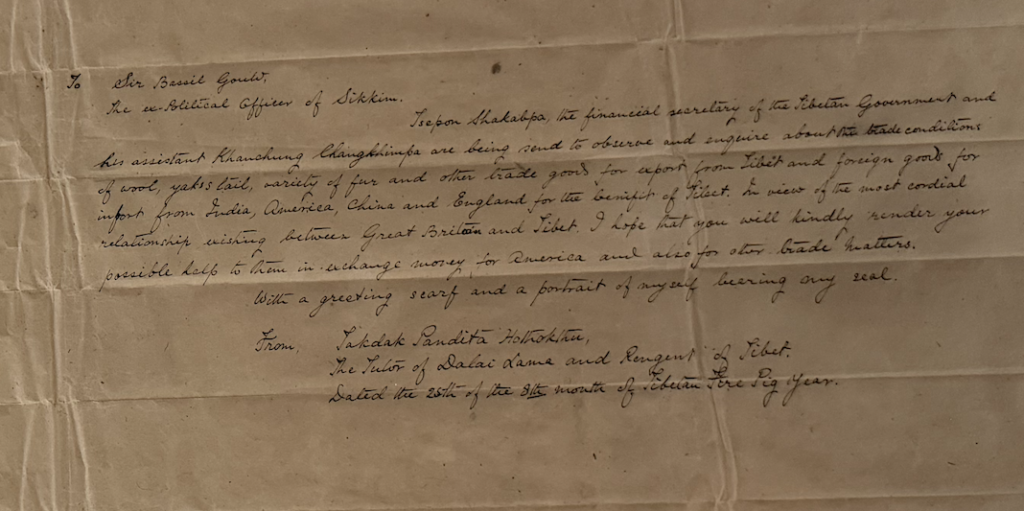 To Sir Bassil Gould.
The ex-Political Officer of Sikkim.
Tsepon Shakabpa, the financiel secretary of the Tibetan Government and
his assistant Khanchung Changkhimpa are being send to observe and enquire about the trade conditions
of wool, yakes tail, variety of fur and other trade goods for export from Tibet and foreign goods for
import from India, America, China and England for the benifit of Tibet. In view of the most cordial
relationship existing between Great Britain and Tibet. I hope that you will kindly render your
possible help to them in exchange money for America and also for other trade matters.
With a greeting scarf and a portrait of myself bearing my seal.
From, Takdak Pandita Hothokthu,
The Tutor of Dalai Lama and Rengent of Tibet.
Dated the 25th of the 8th month of Tibetan Fire Pig Year.